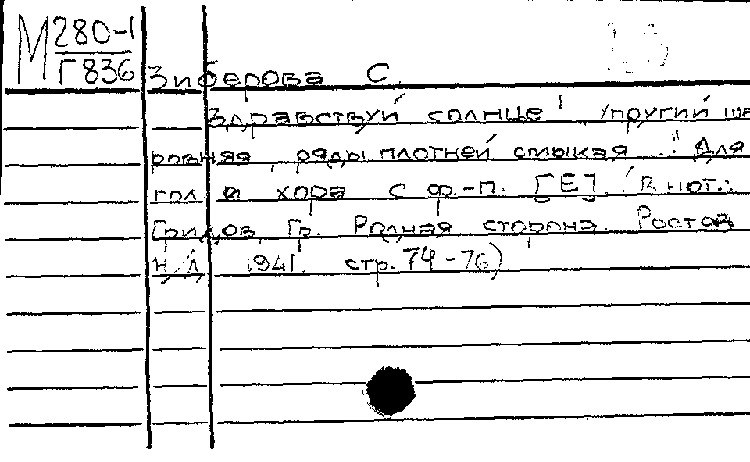 М 280-1
Г836
Зиберова С.
Здравствуй солнце! Упругий ша
ровняя, ряды плотней смыкая..." Для
гол. и хора с ф.-п. [Е]. (В нот.:
Гридов, Гр. Родная сторона. Ростов
н/Д 1941. стр. 74-76)